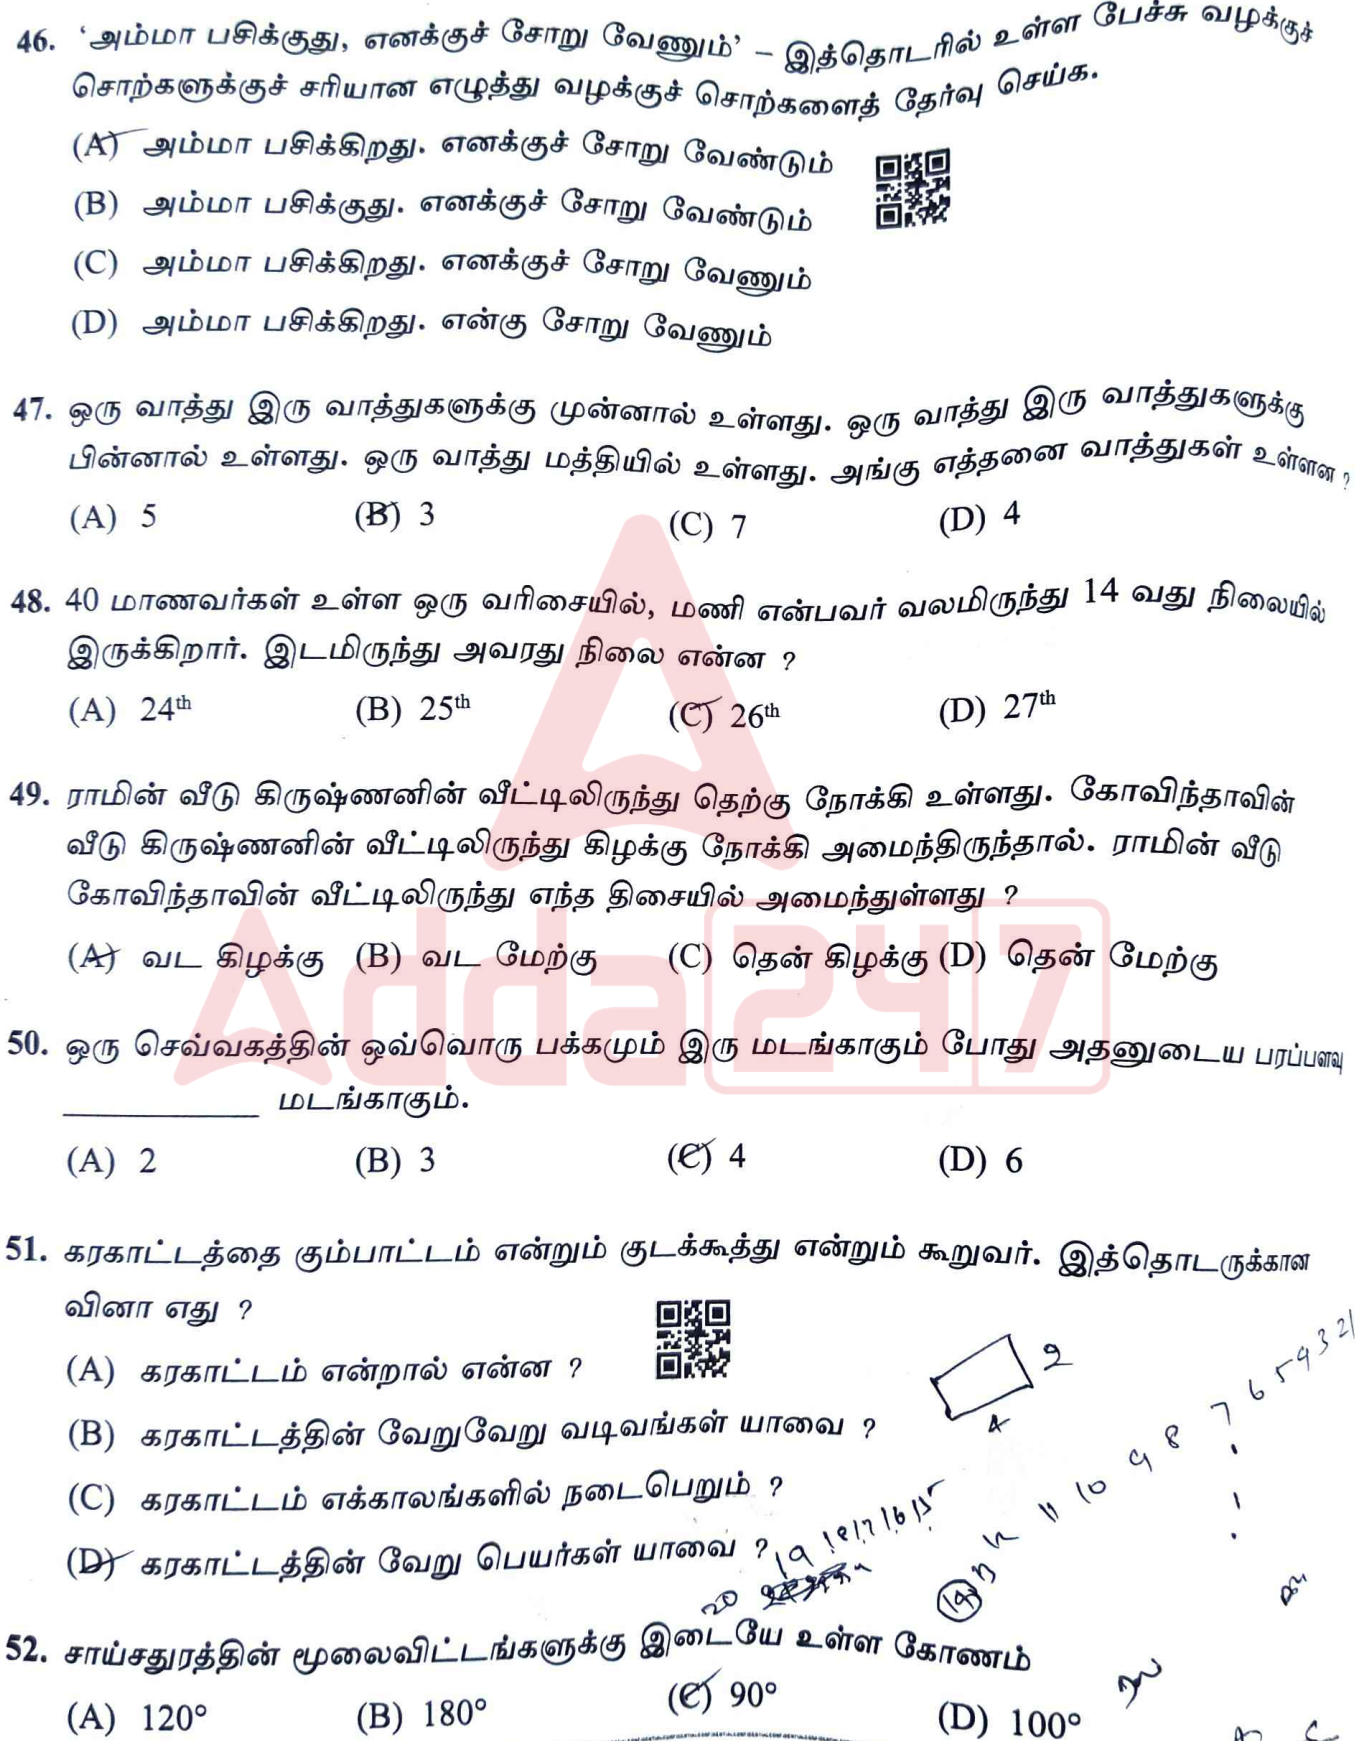 46. ‘அம்மா பசிக்குது, எனக்குச் சோறு வேணும்’ – இத்தொடரில் உள்ள பேச்சு வழக்குச்
சொற்களுக்குச் சரியான எழுத்து வழக்குச் சொற்களைத் தேர்வு செய்க.
(A) அம்மா பசிக்கிறது. எனக்குச் சோறு வேண்டும்
(B) அம்மா பசிக்குது. எனக்குச் சோறு வேண்டும்
(C) அம்மா பசிக்கிறது. எனக்குச் சோறு வேணும்
(D) அம்மா பசிக்கிறது. என்கு சோறு வேணும்
47. ஒரு வாத்து இரு வாத்துகளுக்கு முன்னால் உள்ளது. ஒரு வாத்து இரு வாத்துகளுக்கு
பின்னால் உள்ளது. ஒரு வாத்து மத்தியில் உள்ளது. அங்கு எத்தனை வாத்துகள் உள்ளன ?
(A) 5 (B) 3 (C) 7 (D) 4
48. 40 மாணவர்கள் உள்ள ஒரு வரிசையில், மணி என்பவர் வலமிருந்து 14 வது நிலையில்
இருக்கிறார். இடமிருந்து அவரது நிலை என்ன ?
(A) 24th (B) 25th (C) 26th (D) 27th
49. ராமின் வீடு கிருஷ்ணனின் வீட்டிலிருந்து தெற்கு நோக்கி உள்ளது. கோவிந்தாவின்
வீடு கிருஷ்ணனின் வீட்டிலிருந்து கிழக்கு நோக்கி அமைந்திருந்தால். ராமின் வீடு
கோவிந்தாவின் வீட்டிலிருந்து எந்த திசையில் அமைந்துள்ளது ?
(A) வட கிழக்கு (B) வட மேற்கு (C) தென் கிழக்கு (D) தென் மேற்கு
Adda247
50. ஒரு செவ்வகத்தின் ஒவ்வொரு பக்கமும் இரு மடங்காகும் போது அதனுடைய பரப்பளவு
____________ மடங்காகும்.
(A) 2 (B) 3 (C) 4 (D) 6
51. கரகாட்டத்தை கும்பாட்டம் என்றும் குடக்கூத்து என்றும் கூறுவர். இத்தொடருக்கான
வினா எது ?
(A) கரகாட்டம் என்றால் என்ன ?
(B) கரகாட்டத்தின் வேறுவேறு வடிவங்கள் யாவை ?
(C) கரகாட்டம் எக்காலங்களில் நடைபெறும் ?
(D) கரகாட்டத்தின் வேறு பெயர்கள் யாவை ?
2
4
20 19 18 17 16 15
14 13 12 11 10 9 8 7 6 5 4 3 2 1
52. சாய்சதுரத்தின் மூலைவிட்டங்களுக்கு இடையே உள்ள கோணம்
(A) 120° (B) 180° (C) 90° (D) 100°